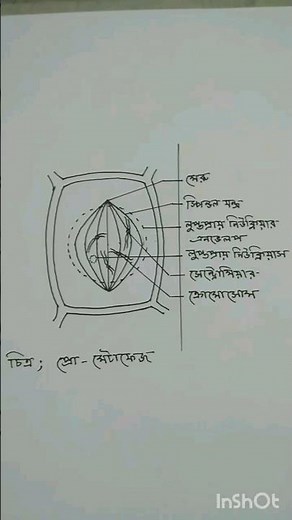 মেরু
স্পিন্ডল যন্ত্র
লুপ্তপ্রায় নিউক্লিয়ার
এনভেলপ
লুপ্তপ্রায় নিউক্লিয়াস
সেন্ট্রোমিয়ার
ক্রোমোসোম
চিত্র ; প্রো - মেটাফেজ
InShOt